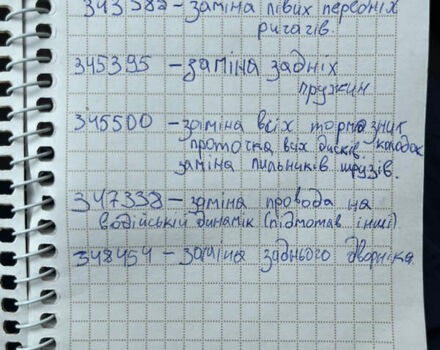 343382 - заміна лівих передніх
ричагів.
345395 - заміна задніх
пружин
345500 - заміна всіх тормозних
колодок
проточка всіх дисків.
заміна пильників шрузів.
347338 - заміна провода на
водійській динамік (підмотав інші)
348454 - заміна заднього дворніка.